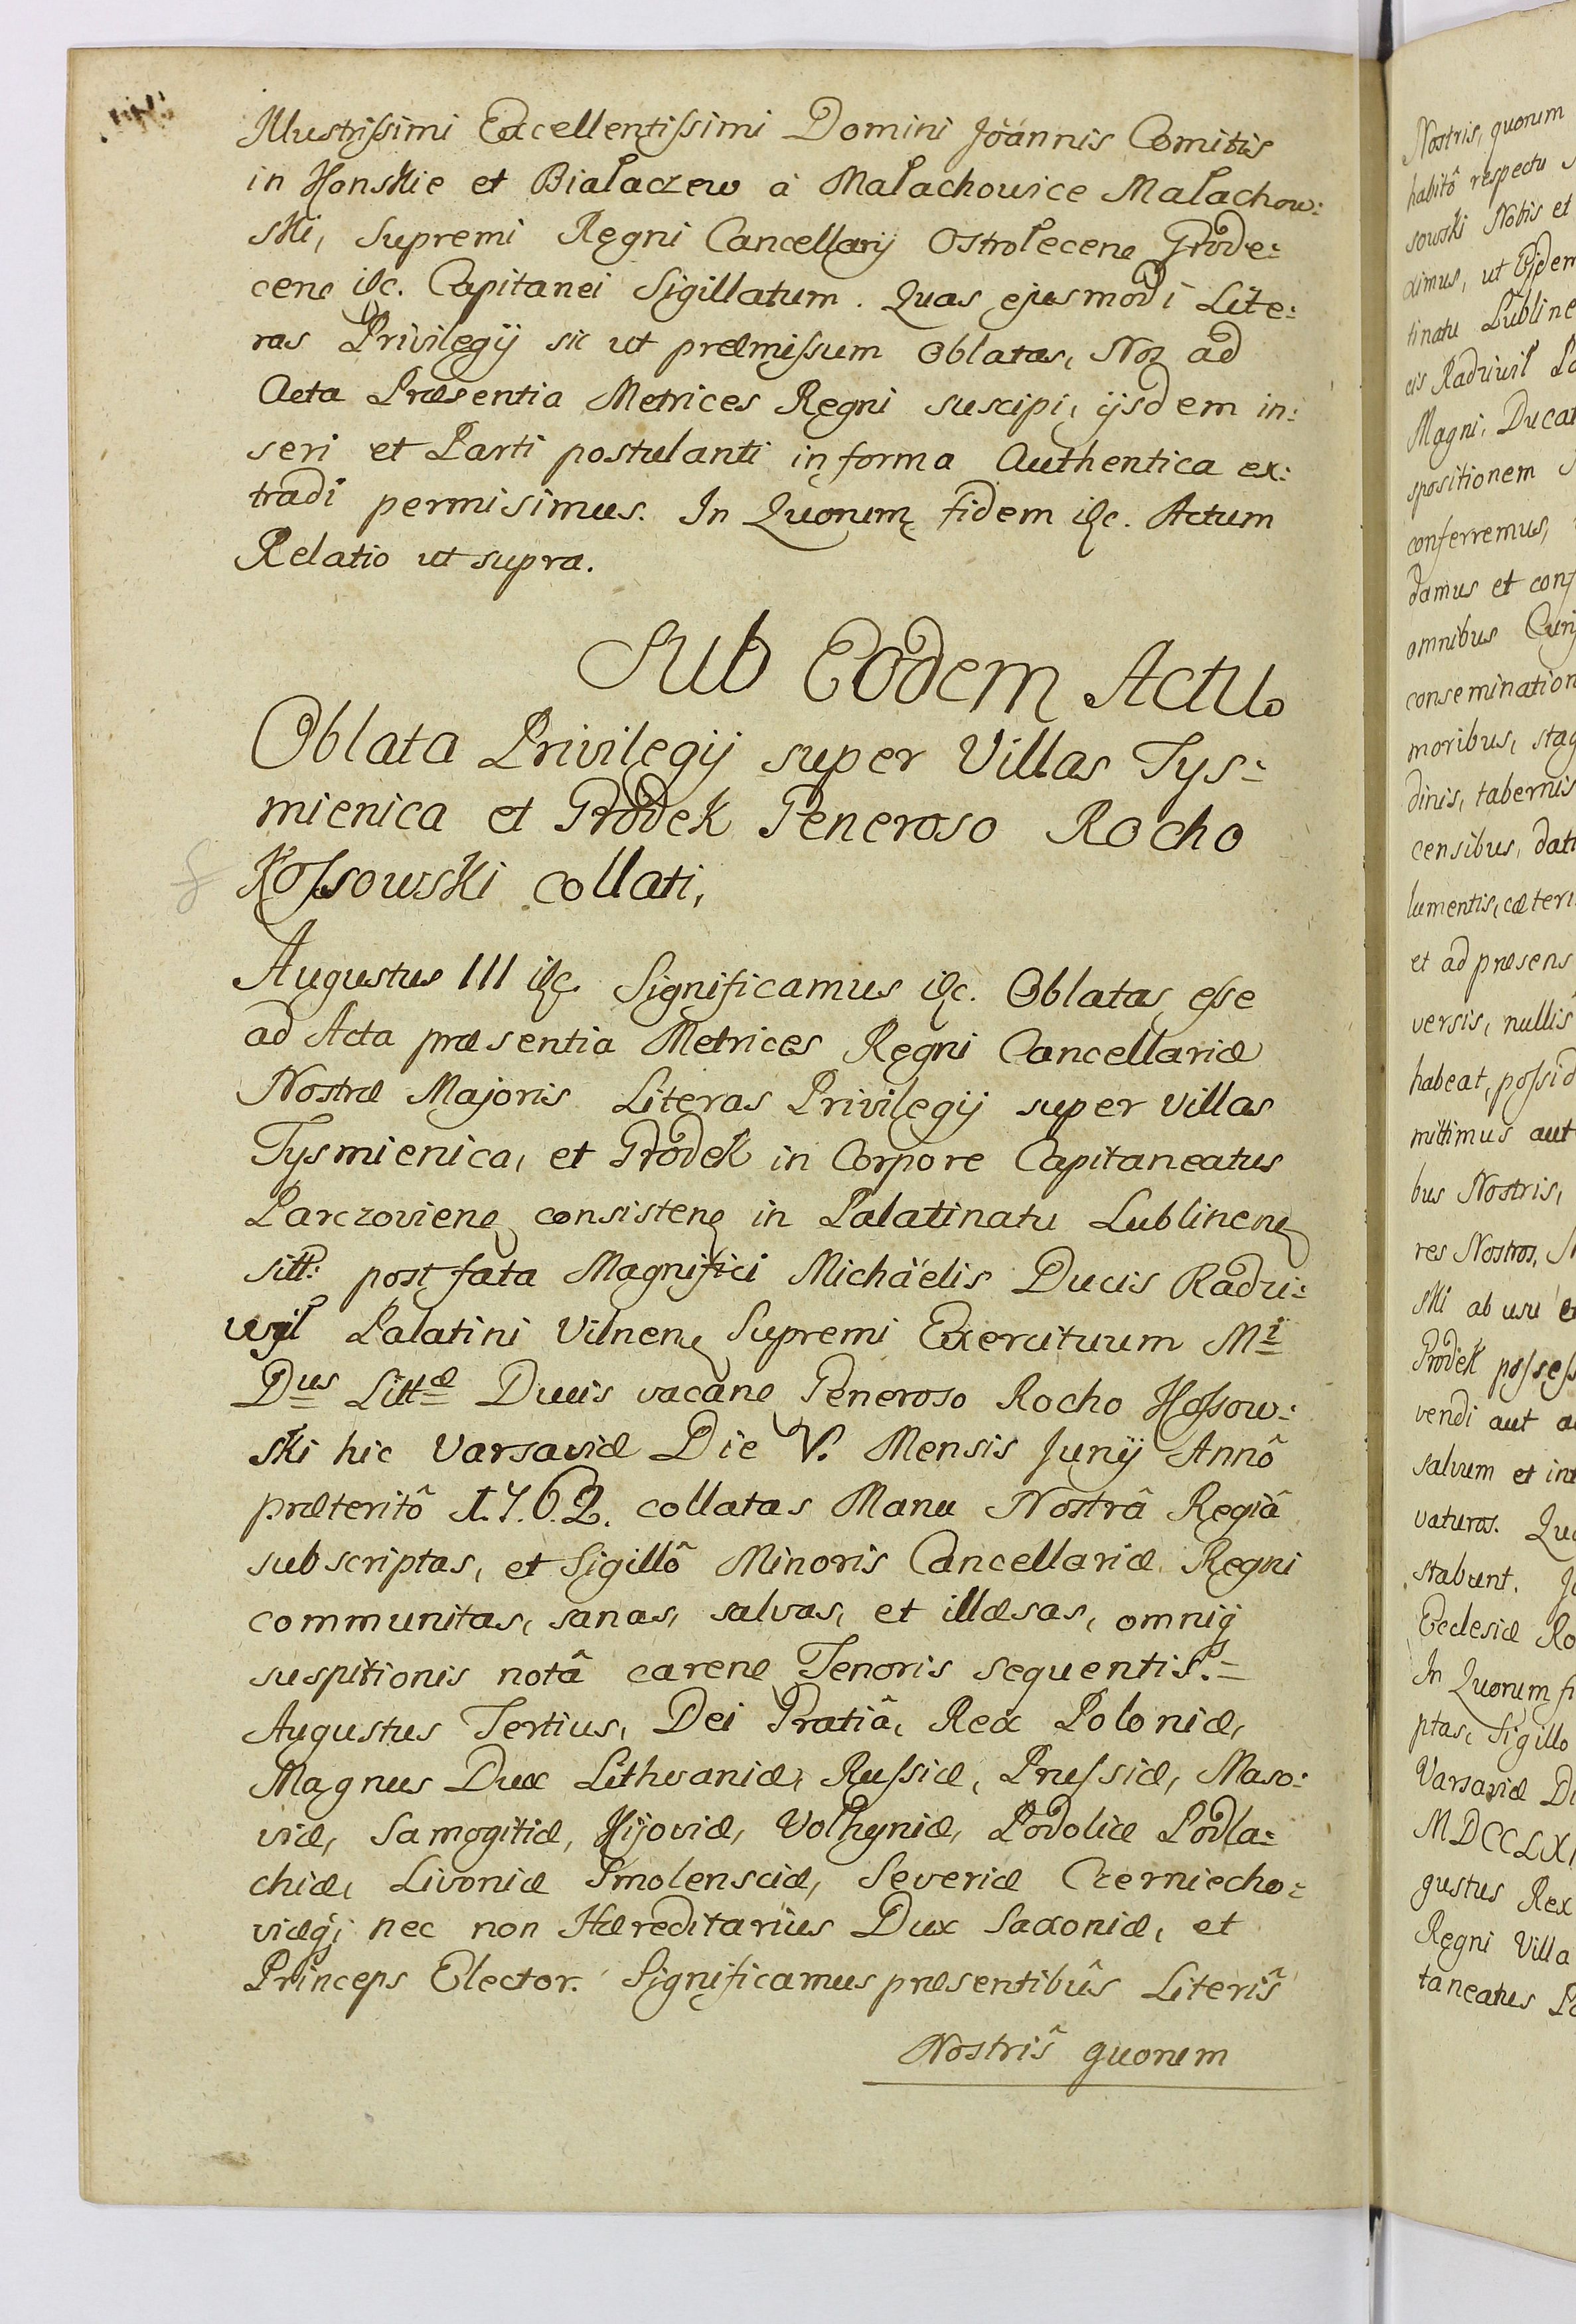 Illustrissimi Excellentissimi Domini Joannis Comitis
in Konskie et Białaczew à Małachowice Małachow:
ski, Supremi Regni Cancellarij Ostrołecens Grode:
cens &c. Capitanei Sigillatum. Quas ejusmodi Lite:
ras Privilegij sic ut præmissum Oblatas, Nos ad
Acta Præsentia Metrices Regni suscipi, ijsdem in:
seri et Parti postulanti in forma Authentica ex:
tradi permisimus. In Quorum fidem &c. Actum
Relatio ut supra.
Sub Eodem Actu.
Oblata Privilegij super Villas Tys:
mienica et Grodek Generoso Rocho
Kossowski collati,
Augustus III &c. Significamus &c. Oblatas esse
ad Acta præsentia Metrices Regni Cancellariæ
Nostræ Majoris Literas Privilegij super villas
Tysmienica, et Grodek in Corpore Capitaneatus
Parczoviens consistens in Palatinatu Lublinens
sitt: post fata Magnifici Michäelis Ducis Radzi:
wił Palatini Vilnens Supremi Exercituum Mi
Dus Littæ Ducis vacans Generoso Rocho Kossow:
ski hic Varsaviæ Die V. Mensis Junij Annô
præteritô 1.7.6.2. collatas Manu Nostrâ Regiâ
subscriptas, et Sigillô Minoris Cancellariæ Regni
communitas, sanas, salvas, et illæsas, omniq
suspitionis notâ carens Tenoris sequentis.=
Augustus Tertius, Dei Gratiâ, Rex Poloniæ,
Magnus Dux Lithvaniæ, Russiæ, Prussiæ, Maso:
viæ, Samogitiæ, Kijoviæ, Volhyniæ, Podoliæ Podla:
chiæ, Livoniæ Smolensciæ, Severiæ Czerniecho:
viæq; nec non Hæreditarius Dux Saxoniæ, et
Princeps Elector. Significamus præsentibûs Literîs
Nostrîs quorum
Nostris, quorum
habitô respectu
sowski Nobis et
ximus, ut Ejdem
tinatu Lubline
cis Radziwił
Magni, Ducat
spositionem
conferremus,
damus et conf
omnibus Curij
consemination
moribus, stag
dinis, tabernis
censibus, dati
lumentis, cæteri
et ad præsens
versis, nullis
habeat, possid
mittimus aut
bus Nostris,
res Nostros,
ski ab usu
Grodek possess
vendi aut
salvum et
vaturos.
stabunt.
Ecclesiæ Ro
In Quorum fi
ptas, Sigillo
Varsaviæ Di
MDCCLX
gustus Rex
Regni Villa
taneatus